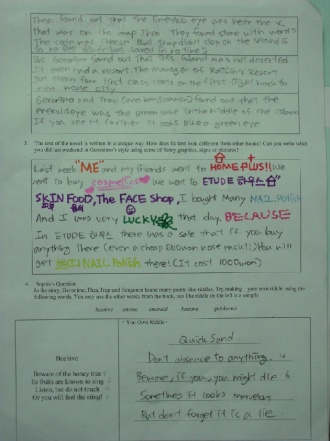 Then found out that the Emerald eye was near the X
that was on the map. Then They found stone with words
The Geronimo found out that this island was not deserted
It even had a resort. The manager of Ratson's Resort
got them first class seats on the first flight back to
New Mouse City.
Geronimo and Trap (and Benjamin too) found out that the
emerald eye was the green lake in the middle of the island
If you see it further it looks like a green eye
3. The text of the novel is written in a unique way. How does its text look different from other books? Can you write what
you did last weekend in Geronimo's style using some of funny graphics, signs or pictures?
Last week "ME" and my friends went to HOME PLUS!! We
went to buy cosmetics We went to ETUDE 하우스
SKIN FOOD, The FACE Shop, I bought Many NAIL POLISH
And I was very LUCKY that day, BECAUSE
In ETUDE 하우스 there was a sale that if you buy
anything there (even a cheap 500won nose pack!!) You will
get NAIL Polish there! (It cost 1000won)
4. Sophie's Question
In the story, Geronimo, Thea, Trap and Benjamin found many poems like riddles. Try making your own riddle using the
following words. You may use the other words from the book, see the riddle on the left is a sample.
Beehive
Beware of the honey tree
Its fruits are known to sting
Listen, but do not touch
Or you will feel the sting!
- You Own Riddle -
Quick Sand
Don't absence to anything.
Beware, if you, you might die
Sometimes it looks marvelous
But don't forget it is a lie.